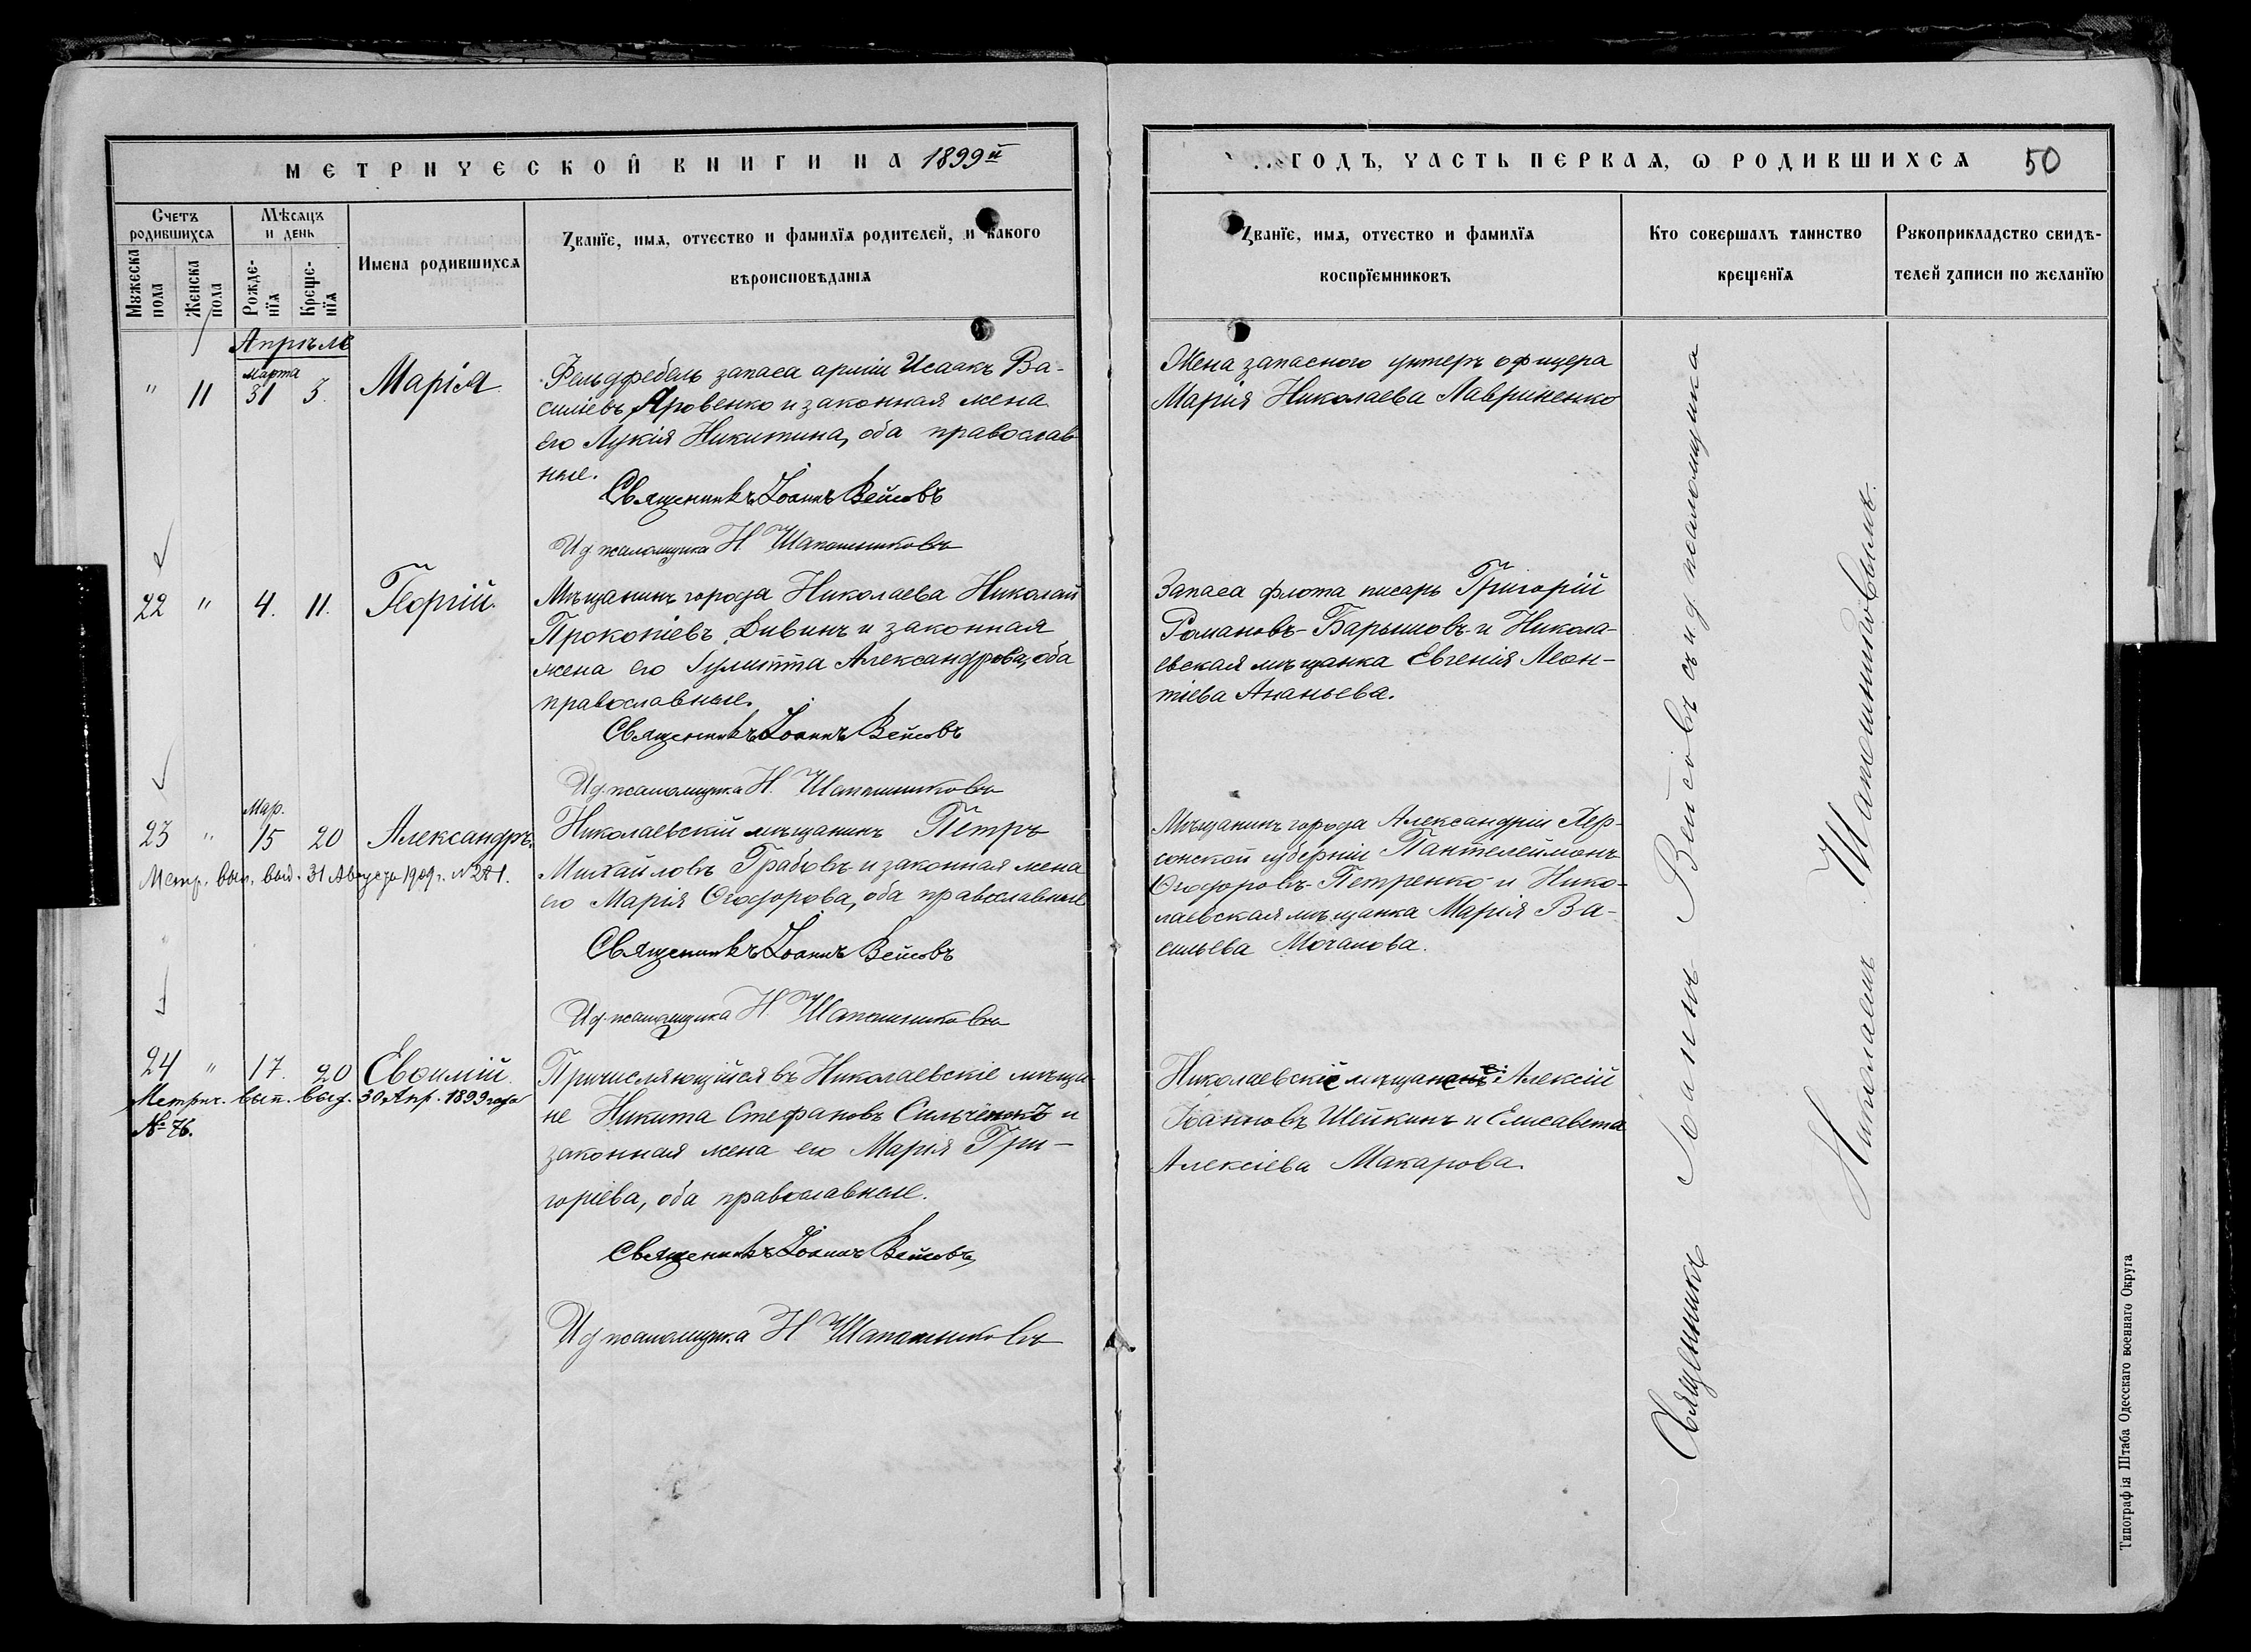 МЕТРИЧЕСКОЙ КНИГИ НА 1899й
ГОДЪ, ЧАСТЬ ПЕРВАЯ, Ѡ РОДИВШИХСЯ 50
Счетъ родившихся
Мужеска пола
Женска пола
Мѣсяцъ и день
Рожде-нїя
Креще-нїя
Имена родившихся
Званїе, имя, отчество и фамилїя родителей, и какого
вѣроисповѣданїя
Званїе, имя, отчество и фамилїя
воспрїемниковъ
Кто совершалъ таинство
крещенїя
Рукоприкладство свидѣ-
телей записи по желанїю
Апрѣль
Марта
" 11 31 3. Марія
Фельдфебель запаса арміи Исаакъ Ва-
силіевъ Яровенко и законная жена
его Лукія Никитина, оба православ
ные.
Священникъ Іоаннъ Вейсовъ
И д псаломщика Н Шапошниковъ
Жена запаснаго унтеръ офицера
Марія Николаева Лавриненко
22 " 4. 11. Георгій.
Мѣщанинъ города Николаева Николай
Прокопіевъ Дивинъ и законная
жена его Іулитта Александрова, оба
православные.
Священникъ Іоаннъ Вейсовъ
И д. псаломщика Н. Шапошниковъ
Запаса флота писарь Григорій
Романовъ Барышовъ и Никола-
евская мѣщанка Евгенія Леон-
тіева Ананьева.
Мар.
23 " 15 20 Александръ.
Метр. вып. выд. 31 Августа 1909 г.
Николаевскій мѣщанинъ Петръ
Михайловъ Грабовъ и законная жена
его Марія Ѳеодорова, оба православные
Священникъ Іоаннъ Вейсовъ
И д. псаломщика Н Шапошниковъ
Мѣщанинъ города Александріи Хер-
сонской губерніи Пантелеймонъ
Ѳеодоровъ Петренко и Нико-
лаевская мѣщанка Марія Ва-
сильева Мочалова.
24 " 17. 20 Евѳимій.
Метрич. вып. выд. 30 Апр. 1899 года
№ 76.
Причисляющійся въ Николаевскіе мѣща-
не Никита Стефановъ Сильченокъ и
законная жена его Марія Гри-
горіева, оба православные.
Священникъ Іоаннъ Вейсовъ
И д псаломщика Н Шапошниковъ
Николаевскіе мѣщане: Алексій
Іоанновъ Шейкинъ и Елисавета
Алексіева Макарова.
Священникъ Іоаннъ Вейсовъ съ и д. псаломщика
Николаемъ Шапошниковымъ.
Типографія Штаба Одесскаго военнаго Округа